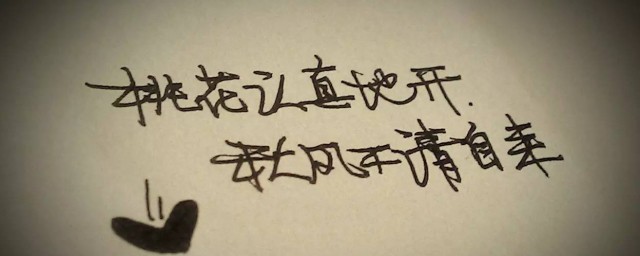 桃花认真地开.
秋风不请自来